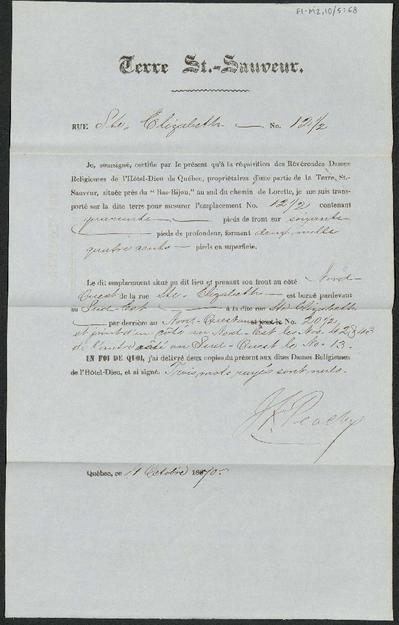 F1-M2,10/5:68
Terre St.-Sauveur.
RUE Ste. Elizabeth — No. 12½
Je, soussigné, certifie par le présent qu'à la réquisition des Révérendes Dames
Religieuses de l'Hôtel-Dieu de Québec, propriétaires d'une partie de la Terre, St.-
Sauveur, située près du "Bas-Bijou," au sud du chemin de Lorette, je me suis trans-
porté sur la dite terre pour mesurer l'emplacement No. 12½) contenant
quarante — pieds de front sur soixante
— pieds de profondeur, formant deux mille
quatre cents — pieds en superficie.
Le dit emplacement situé au dit lieu et prenant son front au côté Nord-
Ouest de la rue Ste. Elizabeth — est borné pardevant
au Sud-Est — à la dite rue Ste. Elizabeth
— par derrière au Nord-Ouest No. 20½,
et joint d'un côté au Nord-Est les Nos. 42 & 43
de l'autre côté au Sud-Ouest le No. 13.
EN FOI DE QUOI, j'ai délivré deux copies du présent aux dites Dames Religieuses
de l'Hôtel-Dieu, et ai signé. Trois mots rayés sont nuls.
Peachy
Québec, ce 11 Octobre 1870.